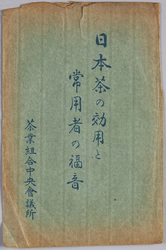 日本茶の効用と
常用者の福音
茶業組合中央會議所